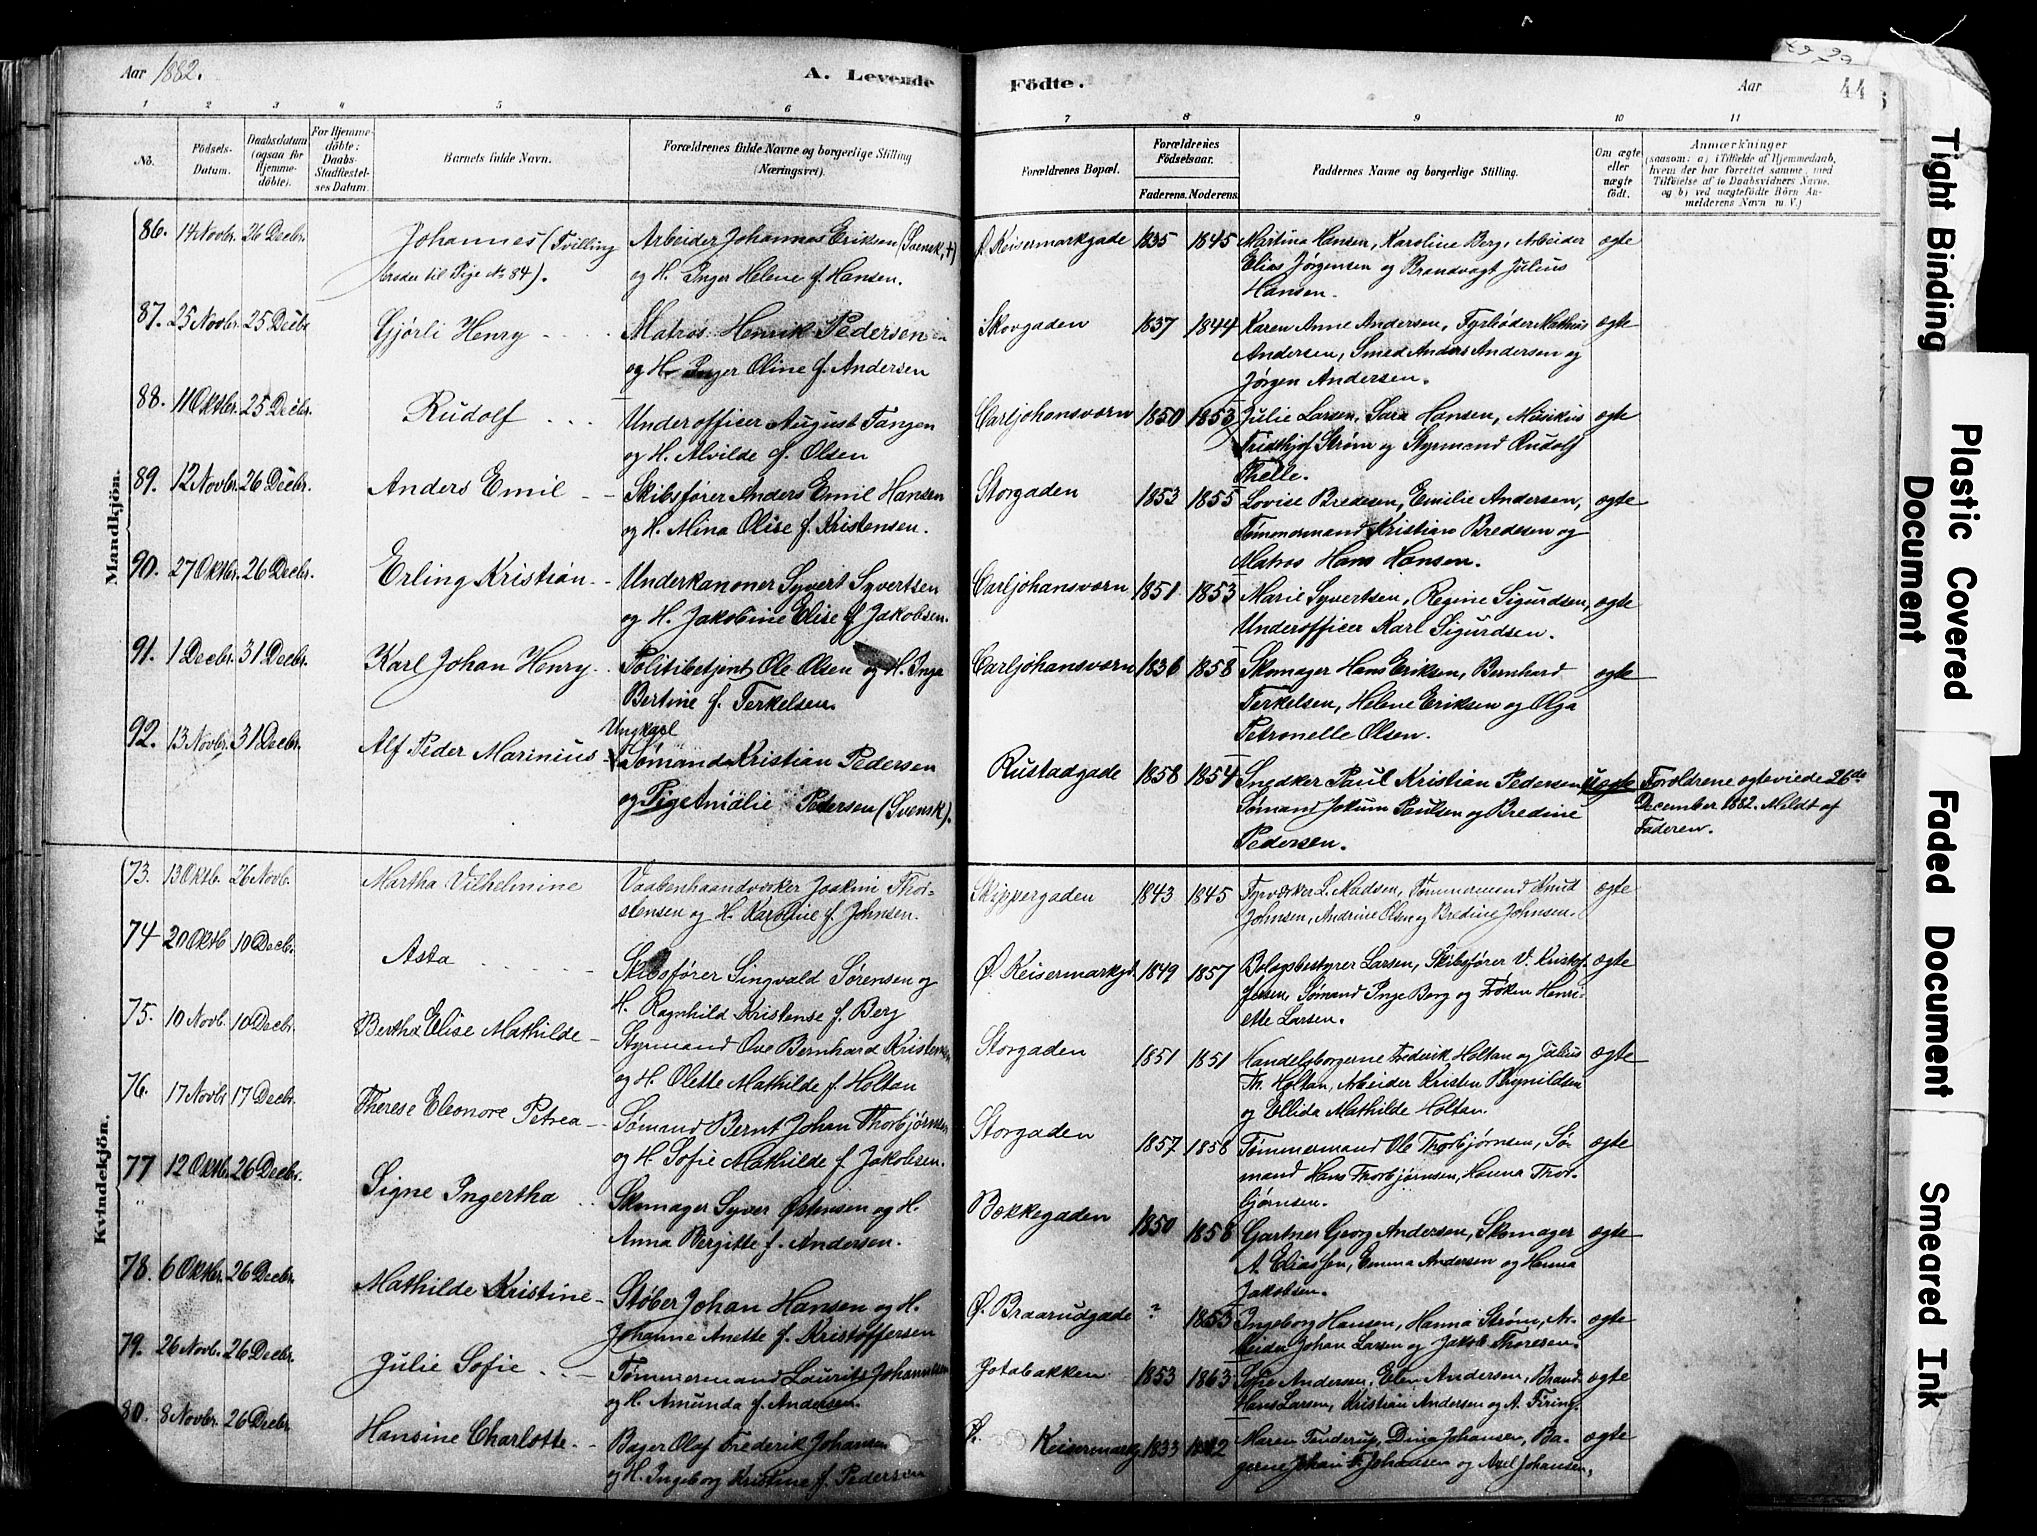 Aar 1882.
A. Levende
Födte.
Aar
44
1 2 3 4 5 6 7 8 9 10 11
No.
Födsels-Datum.
Daabsdatum (ogsaa for Hjemmedöbte).
For Hjemmedöbte: Daabs-Stadfæstelses Datum.
Barnets fulde Navn.
Forældrenes fulde Navne og borgerlige Stilling (Næringsvei).
Forældrenes Bopæl.
Forældrenes Födselsaar.
Faderens. Moderens.
Faddernes Navne og borgerlige Stilling.
Om ægte eller uægte födt.
Anmærkninger
(saasom: a) i Tilfælde af Hjemmedaab, hvem der har forrettet samme, med Tilföielse af to Daabsvidners Navne, og b) ved uægtefödte Börn Anmelderens Navn m. V.)
Mandkjön.
86. 14 Novbr. 26 Decbr. Johannes (Tvilling Arbeider Johannes Eriksen (Svensk, +) Ø. Keisermarkgade 1835 1845 Martina Hansen, Karoline Berg, Arbeider ægte
broder til Pige No 84). og H. Inger Helene f. Hansen. Elias Jørgensen og Brandvagt Julius
Hansen.
87. 25 Novbr. 25 Decbr Gjørli Henry Matros Henrik Pedersen Skovgaden 1837 1844 Karen Anne Andersen, Fyrbøder Mathias ægte
og H. Inger Oline f. Andersen Andersen, Smed Anders Andersen og
Jørgen Andersen.
88. 11 Oktbr. 25 Decbr. Rudolf Underofficer August Tangen Carljohansværn 1850 1853 Julie Larsen, Sara Hansen, Musikus ægte
og H. Alvilde f. Olsen Fridthjof Strøm og Styrmand Rudolf
Thelle.
89. 12 Novbr. 26 Decbr. Anders Emil Skibsfører Anders Emil Hansen Storgaden 1853 1855 Lovise Bredesen, Emilie Andersen, ægte
og H. Mina Olise f. Kristensen. Tømmermand Kristian Bredesen og
Matros Hans Hansen.
90. 27 Oktbr. 26 Decbr. Erling Kristian Underkanoner Syvert Syvertsen Carljohansværn 1851 1853 Marie Syvertsen, Regine Sigurdsen, ægte
og H. Jakobine Elise f. Jakobsen. Underofficer Karl Sigurdsen.
91. 1 Decbr. 31 Decbr. Karl Johan Henry Politibetjent Ole Olsen og H. Inga Carljohansværn 1836 1858 Skomager Hans Eriksen, Bernhard ægte
Bertine f. Terkelsen. Terkelsen, Helene Eriksen og Olga
Petronelle Olsen.
92. 13 Novbr. 31 Decbr. Alf Peder Marinius Ungkarl
Sømand Kristian Pedersen Rustadgade 1858 1854 Snedker Paul Kristian Pedersen, uægte Forældrene ægteviede 26de
og Pige Amalie Pedersen (Svensk). Sømand Jokum Paulsen og Bredine December 1882. Meldt af
Pedersen. Faderen.
Kvindekjön.
73. 13 Oktb. 26 Novb. Martha Vilhelmine Vaabenhaandværker Joakim Thor- Skippergaden 1843 1845 Fyrværker L. Madsen, Tømmermand Knud ægte
stensen og H. Karoline f. Johnsen. Johnsen, Andrine Olsen og Bredine Johnsen.
74 20 Oktb 10 Decbr. Asta Skibsfører Singvald Sørensen og Ø. Keisermarkgd. 1849 1857 Bolagsbestyrer Larsen, Skibsfører V. Kristof- ægte
H. Ragnhild Kristense f. Berg fersen, Sømand Inge Berg og Frøken Henri-
ette Larsen.
75. 10 Novb. 10 Decbr. Bertha Elise Mathilde Styrmand Ove Bernhard Kristensen Storgaden 1851 1851 Handelsborgerne Frederik Holtan og Julius ægte
og H. Olette Mathilde f. Holtan Th. Holtan, Arbeider Kristen Brynildsen
og Ellida Mathilde Holtan.
76. 17 Novbr 17 Decbr. Therese Eleonore Petrea Sømand Bernt Johan Thorbjørnsen Storgaden 1857 1858 Tømmermand Ole Thorbjørnsen, Sø- ægte
og H Sofie Mathilde f. Jakobsen. mand Hans Thorbjørnsen, Hanna Thor-
bjørnsen.
77 12 Oktbr. 26 Decbr. Signe Ingertha Skomager Syver Østensen og H. Bækkegaden 1850 1858 Gartner Georg Andersen, Skomager ægte
Anna Bergitte f. Andersen. A. Eliassen, Emma Andersen og Hanna
Jakobsen.
78. 6 Oktbr. 26 Decbr. Mathilde Kristine Støber Johan Hansen og H. Ø. Braarudgade ? 1853 Ingeborg Hansen, Hanna Strøm, Ar- ægte
Johanne Anette f. Kristoffersen beider Johan Larsen og Jakob Thoresen.
79. 26 Novb. 26 Decbr. Julie Sofie Tømmermand Laurits Johannessen Jotabakken 1853 1863 Sofie Andersen, Elen Andersen, Brand. ægte
og H. Amunda f. Andersen. Hans Larsen, Kristian Andersen og A. Firing.
80. 8 Novbr. 26 Decbr. Hansine Charlotte Bager Olaf Frederik Johansen Ø. Keisermarkg. 1833 1842 Maren Tenderup, Dina Johansen, Ba- ægte
og H. Ingeborg Kristine f. Pedersen gerne Johan F. Johansen og Axel Johansen.
Tight Binding
Plastic Covered Document
Faded Document
Smeared Ink